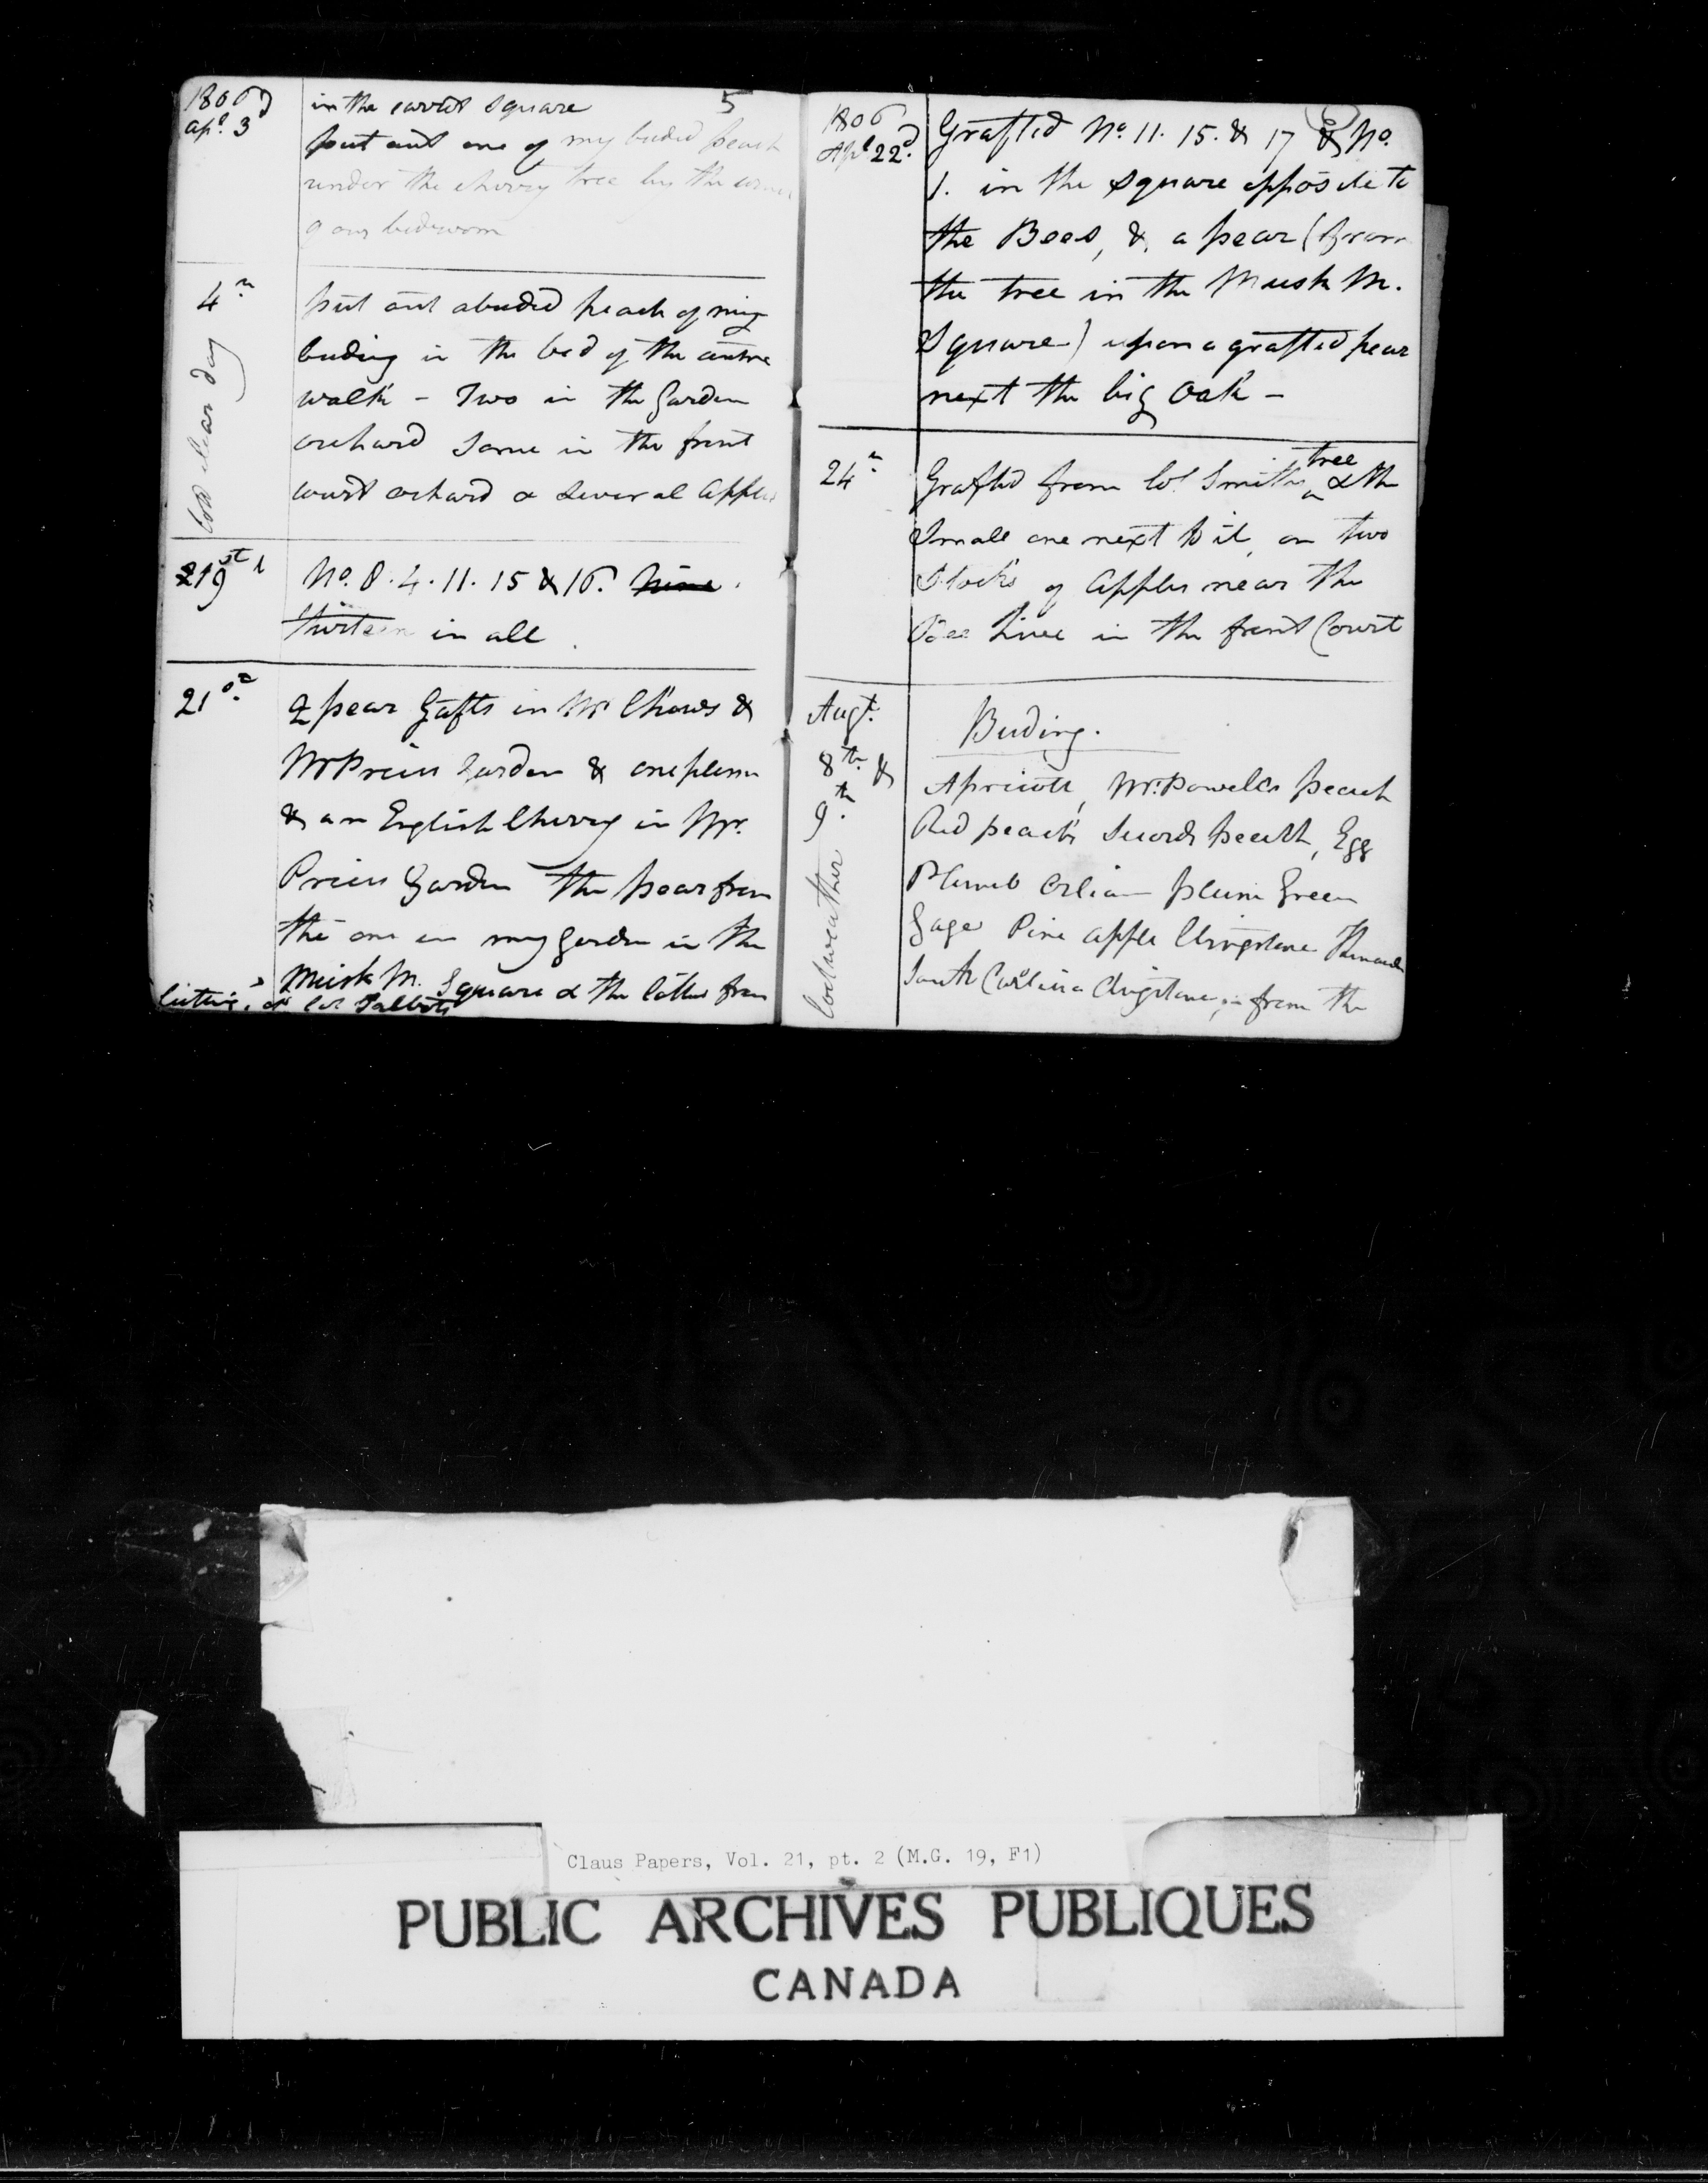 1806 5
apl 3d in the carrot square
put out one of my buded peach
under the cherry tree by the corner
of our bedroom
4th put out a buded peach of my
cold clear day
buding in the bed of the centre
walk - Two in the Garden
orchard some in the front
court orchard & several apples
19th No. 8. 4. 11. 15 & 16. Nine
thirteen in all
21st 2 pear Gafts in Mr Chews &
Mr Prices Garden & one plum
& an English Cherry in Mr.
Prices Garden the pear from
the one in my garden in the
Musk M. Square & the latter from
Col Talbots
1806
Apl 22d. Grafted No. 11. 15. & 17 & No.
1. in the square opposite to
the Bees, & a pear (from
the tree in the Musk M.
Square) upon a grafted pear
next the big Oak -
24th Grafted from Col Smiths tree & the
Small one next to it, on two
Stocks of Apples near the
Bee hive in the front Court
Augt. Buding.
8th & 9th
Cool weather
Apricott, Mr. Powells peach
Red peach Swords peach, Egg
Plumb Orlian plum Green
Gage Pine apple Clingstone
South Carolina Clingstone, from the
Claus Papers, Vol. 21, pt. 2 (M.G. 19, F1)
PUBLIC ARCHIVES PUBLIQUES
CANADA